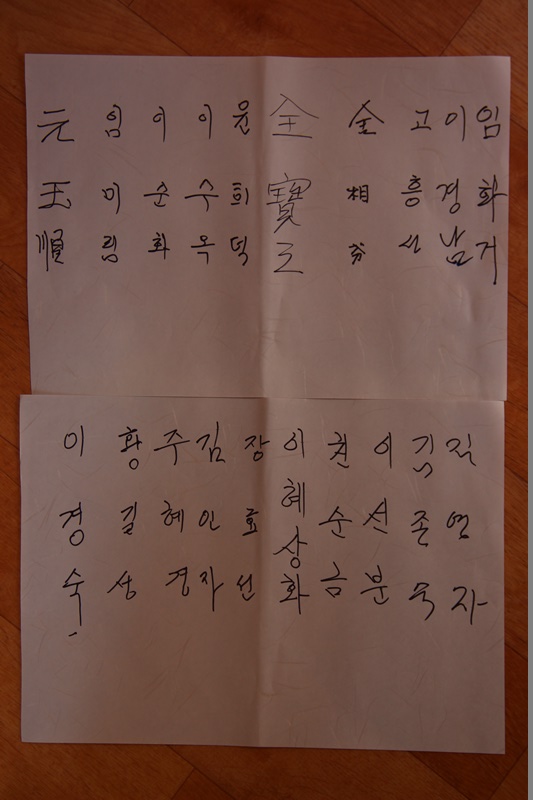 임화거
이경남
고흥선
金相芬
全寶
윤희덕
이수옥
이순화
임미림
元玉順
자
김존옥
이선분
권순금
이혜상화
장효선
김인자
주혜경
황길성
이경숙